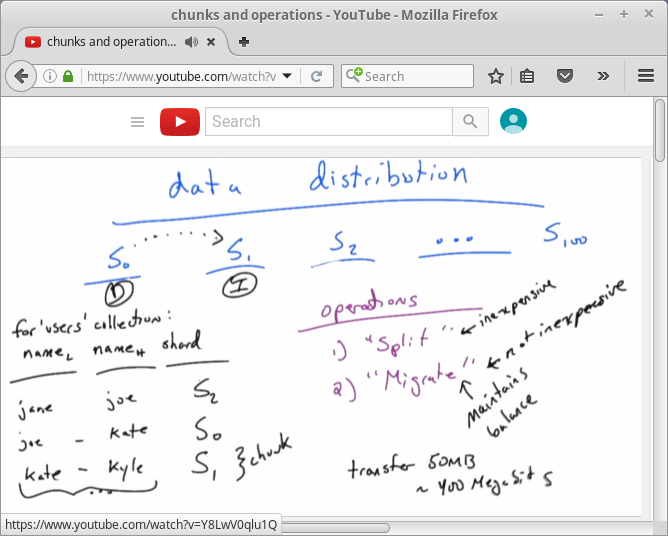 chunks and operations - YouTube - Mozilla Firefox
chunks and operation...
https://www.youtube.com/watch?v
Search
Search
data distribution
S0 S1 S2 ... S100
D I
for 'users' collection:
nameL nameH shard
jane joe S2
joe - kate S0
kate - kyle S1 } chunk
...
operations
1) "Split" inexpensive
2) "Migrate" not inexpensive
Maintains
balance
transfer 50MB
~ 400 MegaBits
https://www.youtube.com/watch?v=Y8LwV0qlu1Q